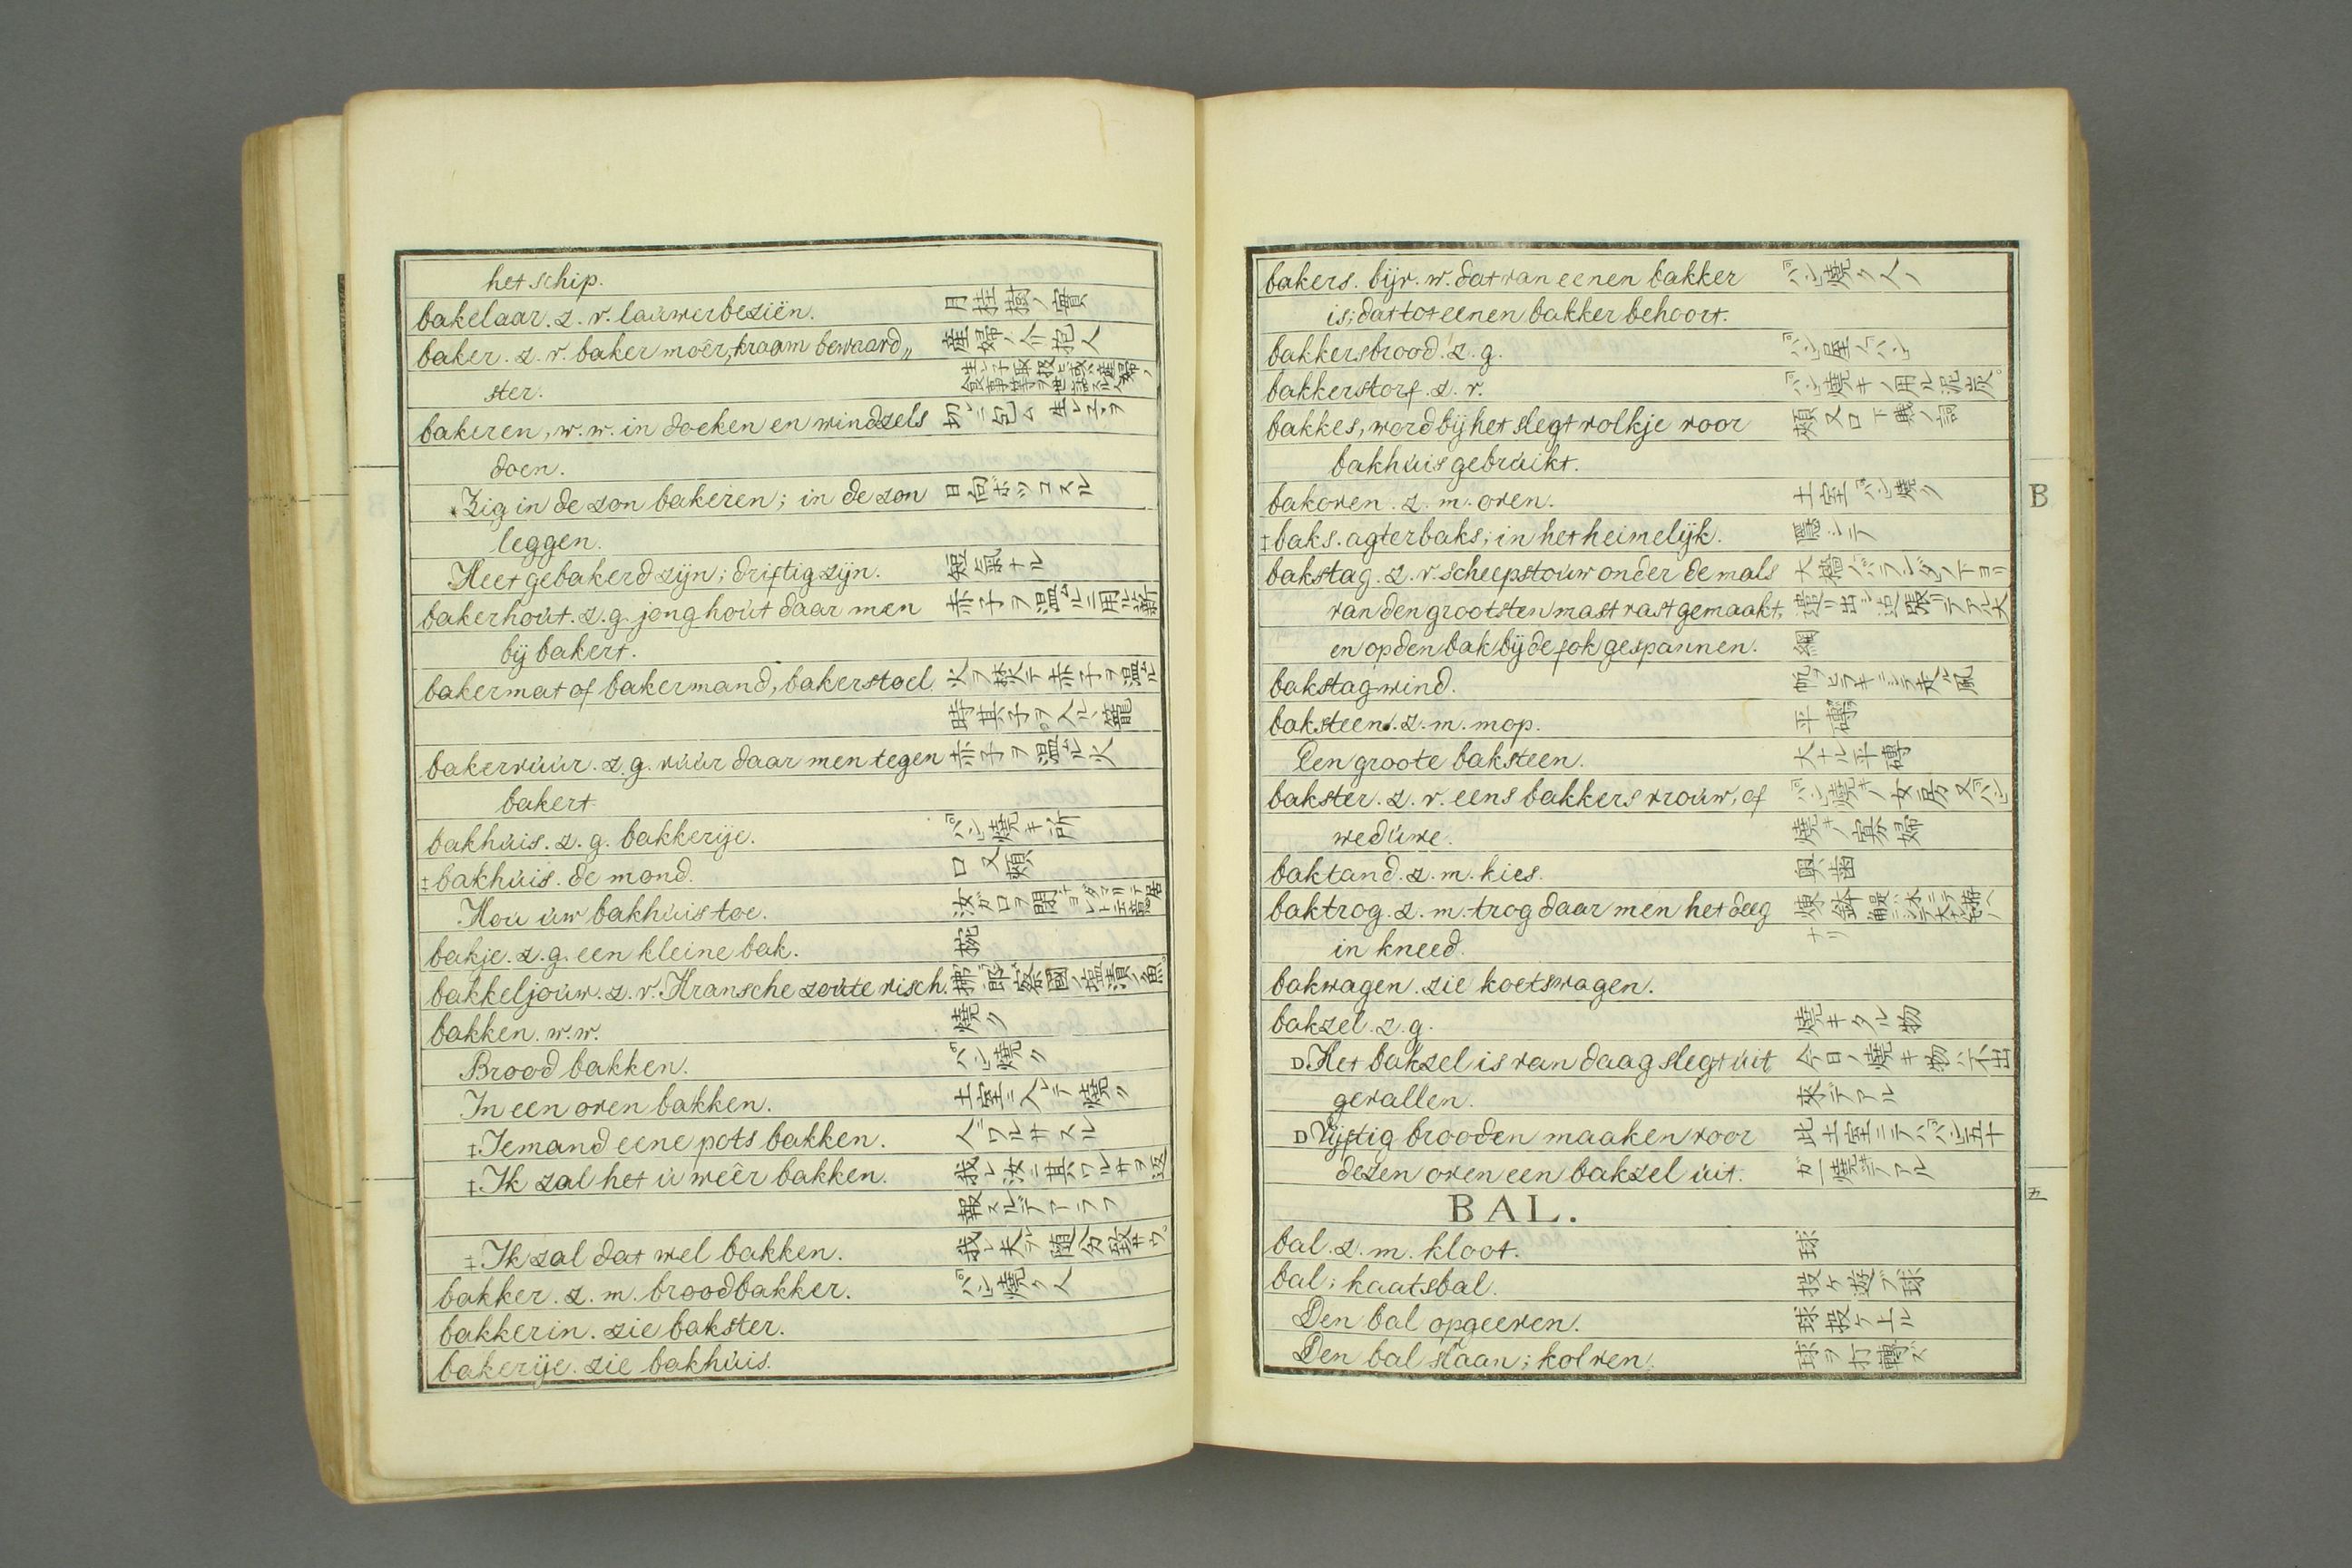 het schip.
bakelaar. z. v. laúwerbeziën. 月桂樹ノ實
baker. z. v. baker moêr, kraam bewaard„ 産婦ノ介抱人
ster.
bakeren, w. w. in doeken en windzels
doen.
Zig in de zon bakeren; in de zon 日向ボツコスル
leggen.
Heet gebakerd zijn; driftig zijn. 短氣ナル
bakerhoút. z. g. jong hoút daar men 赤子ヲ温ルニ用ル薪
bij bakert.
bakermat of bakermand, bakerstoel 火ヲ焚テ赤子ヲ温ル
時其子ヲ入ル籠
bakervúúr. z. g. vúúr daar men tegen 赤子ヲ温ル火
bakert.
bakhúis. z. g. bakkerije. パン焼キ所
‡bakhúis. de mond. 口又頬
Hoú úw bakhúis toe. 汝ガ口ヲ閉ヂヨ
bakje. z. g. een kleine bak. 椀
bakkeljoúw. z. v. Fransche zoúte visch. 拂郎察國ノ塩漬ノ魚
bakken. w. w. 燒ク
Brood bakken. パン燒ク
In een oven bakken. 土室ニ入レテ燒ク
‡Iemand eene pots bakken. 人ニワルサスル
‡Ik zal het ú weêr bakken. 我レ汝ニ其ワルサヲ返
報スルデアラフ
‡Ik zal dat wel bakken. 我レ夫ヲ随分致サウ
bakker. z. m. broodbakker. パン燒ク人
bakkerin. zie bakster.
bakerije. zie bakhúis.
bakers. bijv. w. dat van eenen bakker パン燒ク人ノ
is; dat tot eenen bakker behoort.
bakkersbrood. z. g. パン屋ノパン
bakkerstorf. z. v. パン燒キノ用ル泥炭
bakkes, word bij het slegt volkje voor 頬又口下賤ノ詞
bakhúis gebrúikt.
bakoven. z. m. oven. 土室パン燒ク
‡baks. agterbaks; in het heimelijk. 隱シテ
bakstag. z. v. scheepstoúw onder de mals
van den grootsten mast vast gemaakt,
en op den bak bij de fok gespannen. 綱
bakstagwind.
baksteen. z. m. mop. 平磚
Een groote baksteen. 大ナル平磚
bakster. z. v. eens bakkers vroúw, of パン燒キノ女房又パン
wedúwe. 燒キノ寡婦
baktand. z. m. kies. 奥齒
baktrog. z. m. trog daar men het deeg
in kneed.
bakwagen. zie koetswagen.
bakzel. z. g. 燒キタル物
D Het bakzel is van daag slegt úit 今日ノ燒キ物ハ不出
gevallen. 來デアル
D Vijftig brooden maaken voor 此土室ニテハパン五十
dezen oven een bakzel úit. ガ一燒キデアル
BAL.
bal. z. m. kloot. 球
bal; kaatsbal. 投ケ遊ブ球
Den bal opgeeven. 球投ケ上ル
Den bal slaan; kolven. 球ヲ打轉ス
B